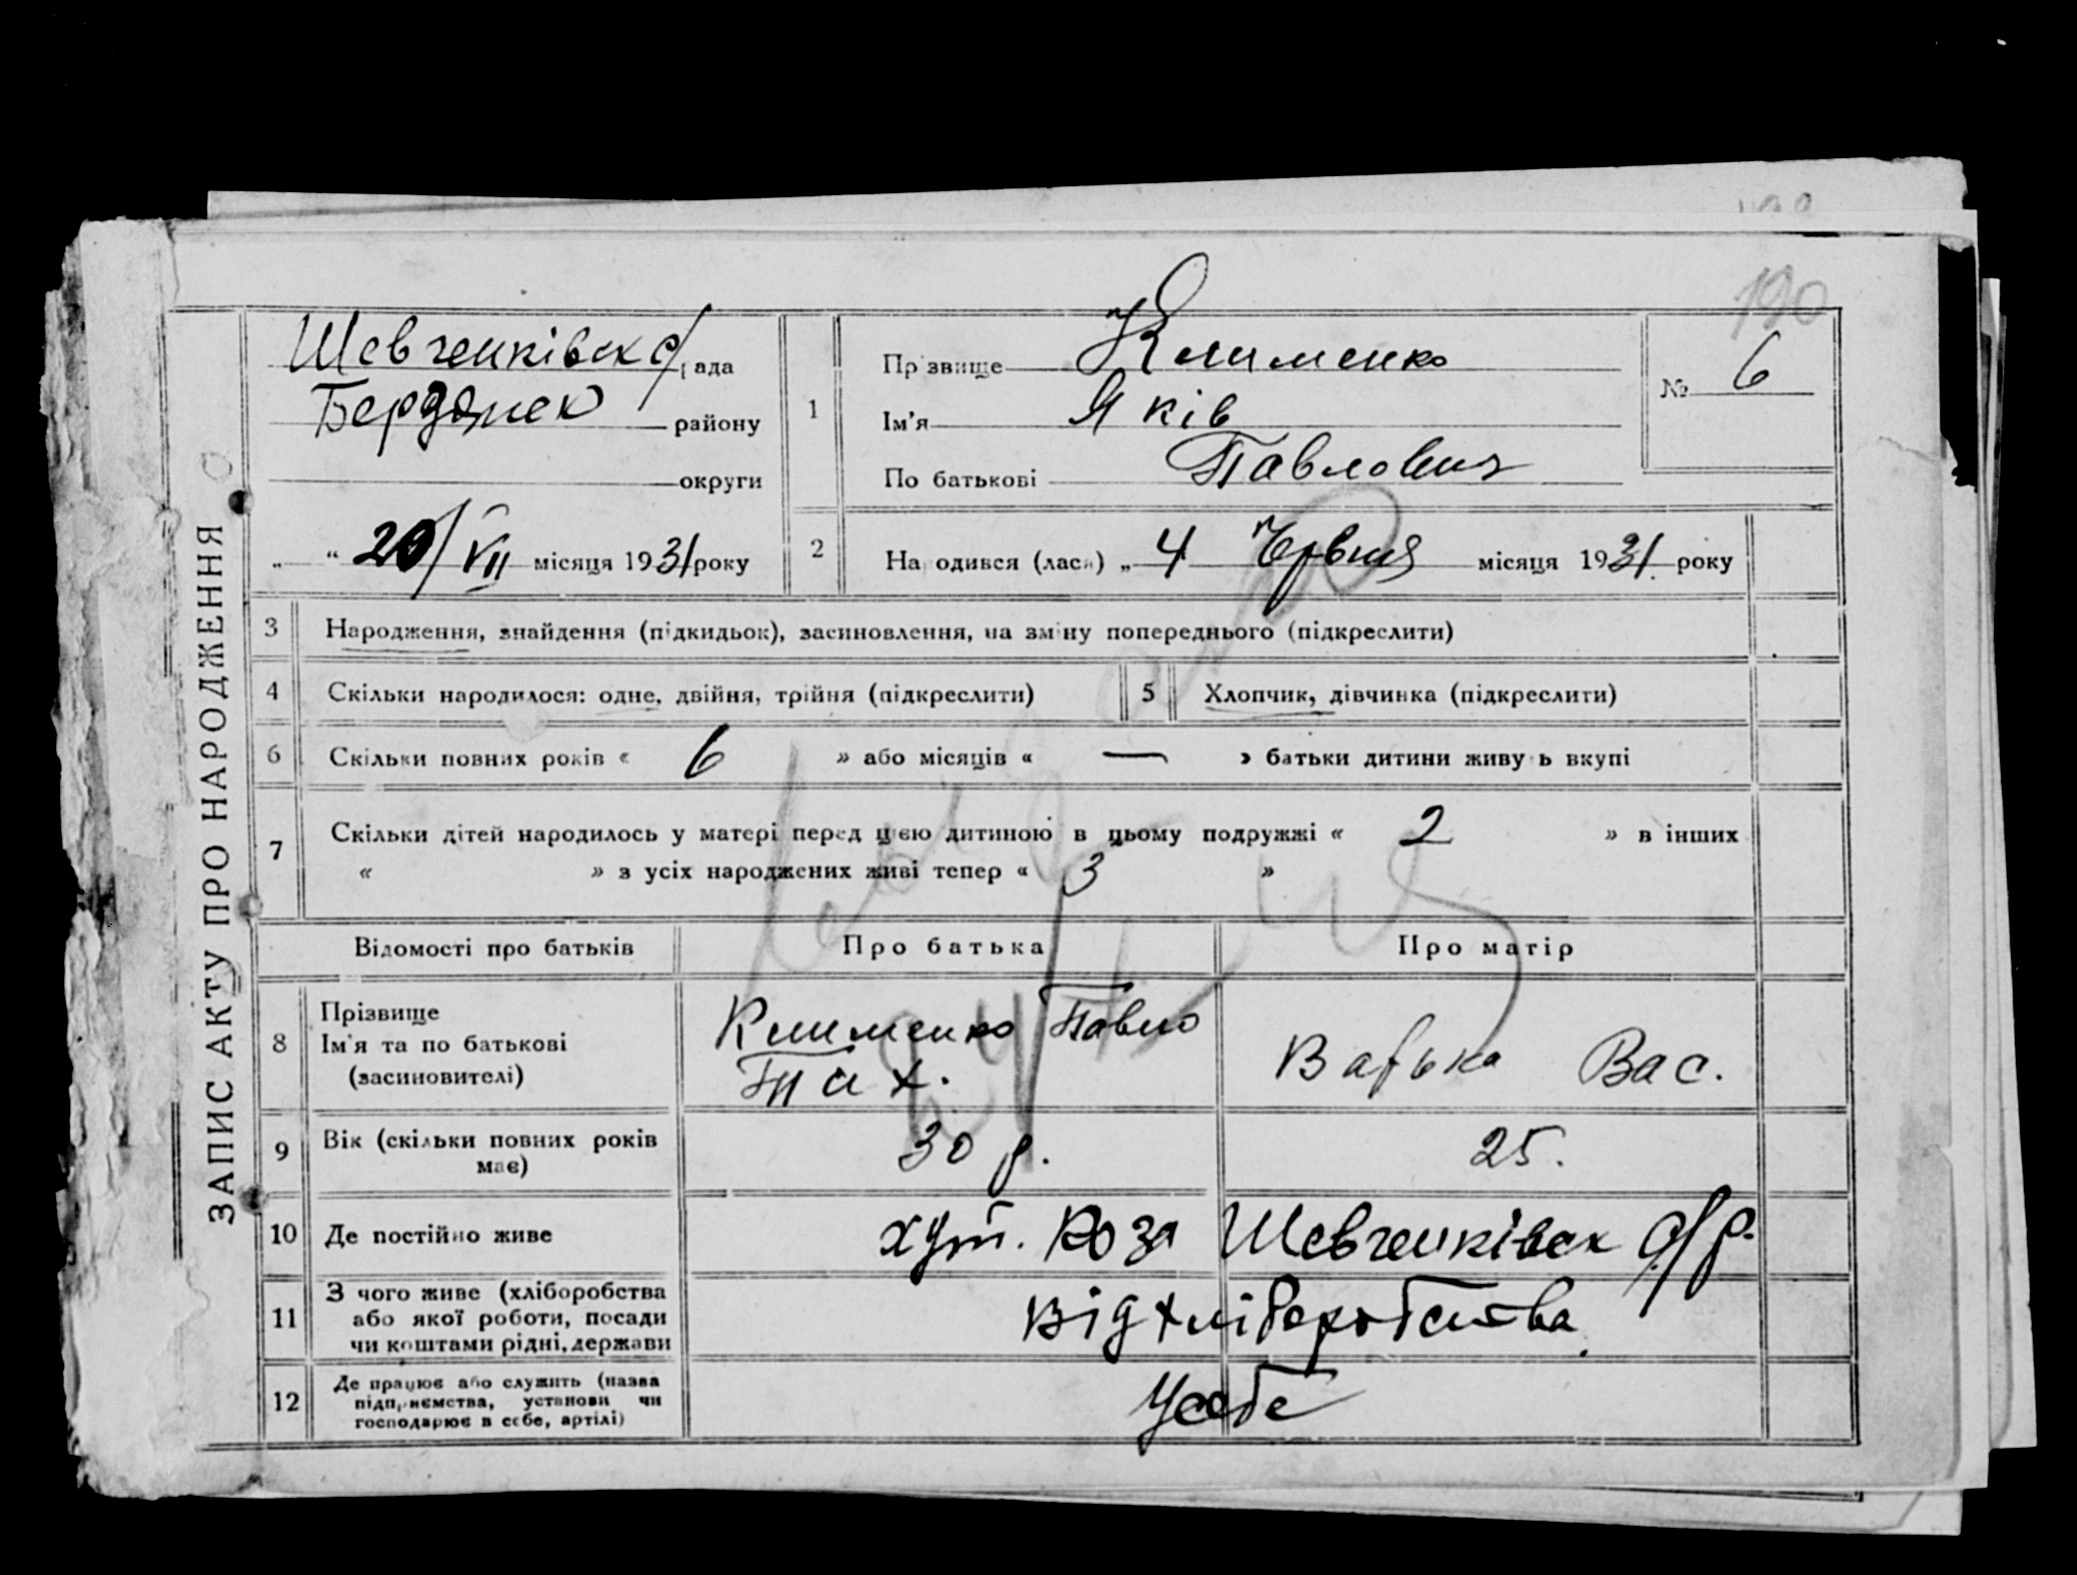 190
ЗАПИС АКТУ ПРО НАРОДЖЕННЯ
Шевченківск с/рада
Бердянск району
округи
„ “ 20/VII місяця 1931 року
1
Прізвище Клименко
Ім'я Яків
По батькові Павлович
№ 6
2
Народився (лася) „ 4 Червня місяця 1931 року
3 Народження, знайдення (підкидьок), засиновлення, на зміну попереднього (підкреслити)
4 Скільки народилося: одне, двійня, трійня (підкреслити)
5 Хлопчик, дівчинка (підкреслити)
6 Скільки повних років « 6 » або місяців « — » батьки дитини живуть вкупі
7 Скільки дітей народилось у матері перед цією дитиною в цьому подружжі « 2 » в інших
« » з усіх народжених живі тепер « 3 »
Відомості про батьків Про батька Про матір
8 Прізвище
Ім'я та по батькові
(засиновителі)
Клименко Павло
Вас.
9 Вік (скільки повних років
має)
30 р. 25.
10 Де постійно живе хут. Роза Шевченківск с/р.
11 З чого живе (хліборобства
або якої роботи, посади
чи коштами рідні, держави
від хліборобства
12 Де працює або служить (назва
підприємства, установи чи
господарює в себе, артілі)
Усебе